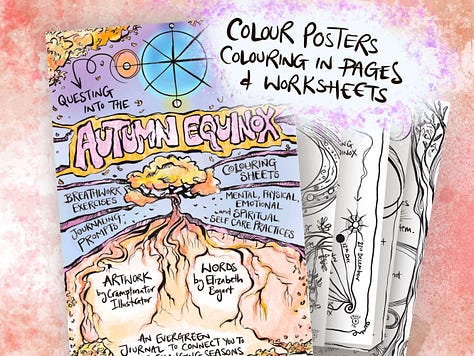 COLOUR POSTERS
COLOURING IN PAGES
& WORKSHEETS
QUESTING
INTO THE
AUTUMN EQUINOX
BREATHWORK
EXERCISES
COLOURING
SHEETS
JOURNALING
PROMPTS
MENTAL, PHYSICAL,
EMOTIONAL
and SPIRITUAL
SELF CARE PRACTICES
ARTWORK
by Cramplonator
Illustrator
WORDS
by Elizabeth
AN EVERGREEN
JOURNAL TO CONNECT YOU TO
SEASONS